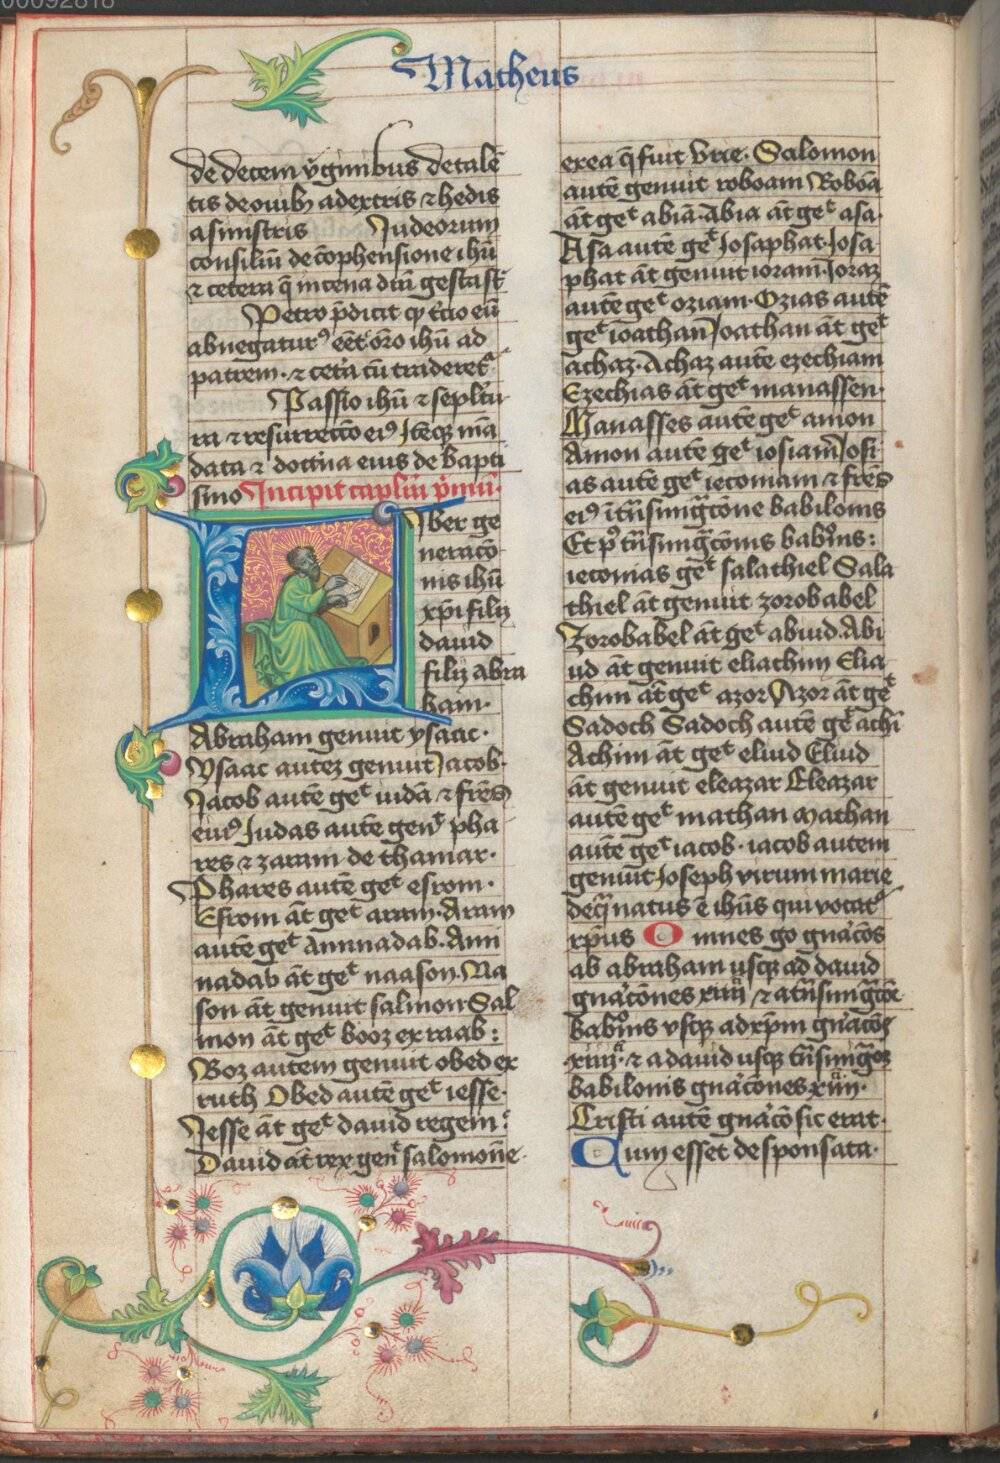 00092818
Matheus
de decem v̓ginibus de talē
tis de ouibꝫ a dextris ⁊ hedis
a sinistris Judeorum
consiliū de cōphensione ihū
⁊ cetera q̄ in cena dn̄i gesta sūt
Petro p̄dicit qꝫ t̓cio eū
abnegaturꝰ eēt orō ihū ad
patrem · ⁊ cet̓a cū traderet᷑
Passio ihū ⁊ sepltu
ra ⁊ resurrectō eiꝰ Itēqꝫ mā
data ⁊ doct͛na eius de bapti
smo Incipit caplm̄ p̓mū ·
Liber ge
neracō
nis ihū
xp̄i filij
dauid
filij abra
ham ·
Abraham genuit ysaac ·
Ysaac autez genuit Jacob ·
Jacob autē geᵗ iudā ⁊ frēs
eiuꝰ Judas autē genᵗ pha
res ⁊ zaram de thamar ·
Phares autē geᵗ esrom ·
Esrom āt geᵗ aram · Aram
autē geᵗ Aminadab · Ami
nadab āt geᵗ naason Na
son āt genuit salmon Sal
mon āt geᵗ booz ex raab :
Boz autem genuit obed ex
ruth Obed autē geᵗ iesse ·
Jesse āt geᵗ dauid regem :
Dauid āt rex genᵗ salomonē ·
ex ea q̄ fuit Vrie · Salomon
autē genuit roboam Roboā
āt geᵗ abiā · Abia āt geᵗ asa ·
Asa autē geᵗ Josaphat · Josa
phat āt genuit ioram · Joraꝫ
autē geᵗ oziam · Ozias autē
geᵗ ioathan Joathan āt geᵗ
achaz · Achaz autē ezechiam
Ezechias āt geᵗ manassen ·
Manasses autē geᵗ amon
Amon autē geᵗ iosiam Josi
as autē geᵗ ieconiam ⁊ frēs
eiꝰ ī tn̄smigͣcōne babilonis
Et pꝰ tn̄smigͣcōnis babōis :
ieconias geᵗ salathiel Sala
thiel āt genuit zorobabel
Zorobabel āt geᵗ abiud · Abi
ud āt genuit eliachim Elia
chim āt geᵗ azor Azor āt geᵗ
Sadoch Sadoch autē geᵗ achī
Achim āt geᵗ eliud Eliud
āt genuit eleazar Eleazar
autē geᵗ mathan Mathan
autē geᵗ iacob · iacob autem
genuit Joseph virum marie
de q̄ natus ē ihūs qui vocat᷑
xp̄us Omnes go gn̄acōs
ab abraham usqꝫ ad dauid
gn̄acōnes xiiij ⁊ a tn̄smigͣcōe
babōis vsqꝫ ad xp̄m gn̄acōꝫ
xiiij · ⁊ a dauid usqꝫ tn̄smigͣoꝫ
babilonis gn̄acōnes xiiij ·
Cristi autē gn̄acō sic erat ·
Cum esset desponsata ·